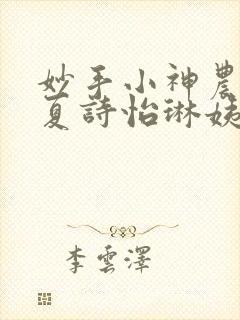 妙手小神農
夏詩怡琳姨
李雲澤